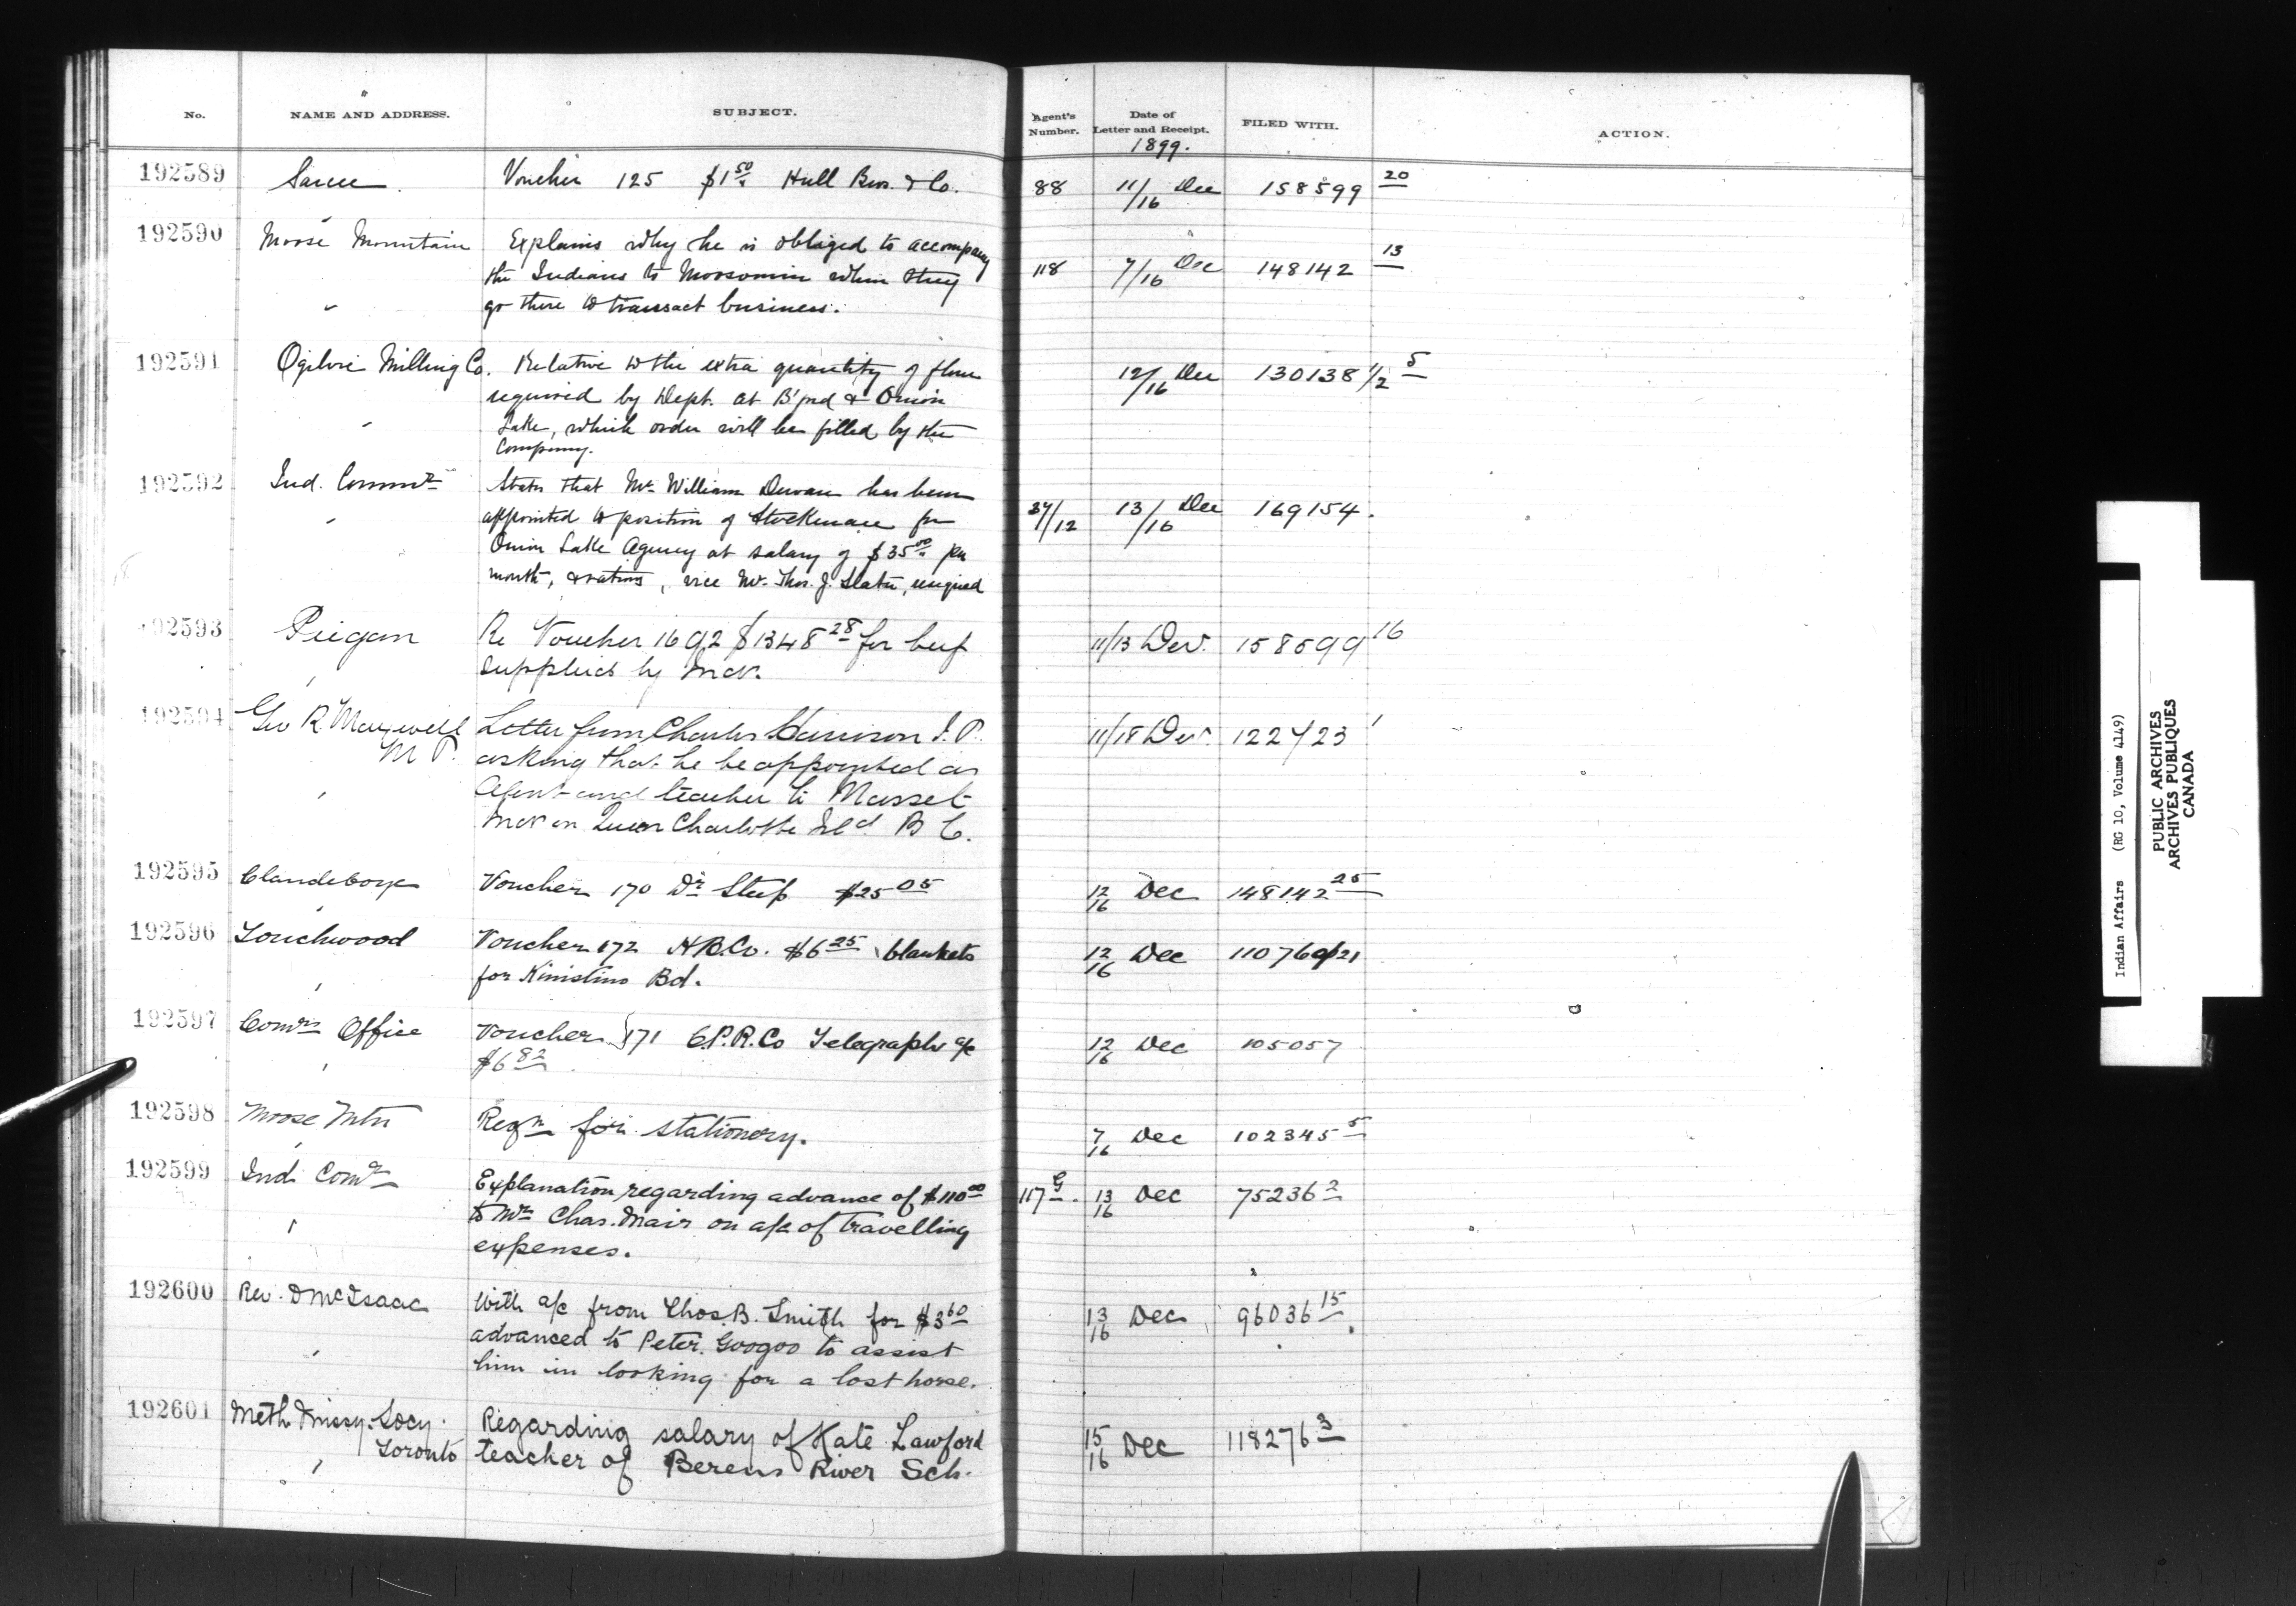 No. NAME AND ADDRESS. SUBJECT. Agent's Number. Date of Letter and Receipt. 1899. FILED WITH. ACTION.
192589 Sarcee. Voucher 125 $1.50 Hull Bros. & Co. 88 11/16 Dec 158599 20
192590 Moose Mountain Explains why he is obliged to accompany
the Indians to Moosomin when they 118 7/16 Dec 148142 13
go there to transact business.
192591 Ogilvie Milling Co. Relative to the extra quantity of flour 12/16 Dec 130138 1/2 5
required by Dept. at B'ford & Onion
Lake, which order will be filled by the
Company.
192592 Ind. Commr States that Mr. William Dewan has been
appointed to position of Stockman for 37/12 13/16 Dec 169154.
Onion Lake Agency at salary of $35.00 per
month, & rations, vice Mr. Thos. J. Slater, resigned
192593 Peigan Re Voucher 1692 $1348 28 for beef 11/13 Dec. 158599 16
supplied by Inds.
192594 Geo R. Maxwell M P. Letter from Charles Harrison J. P. 11/18 Dec. 122723 1
asking that he be appointed as
Agent and teacher to Masset
Inds on Queen Charlotte Isld B C.
192595 Clandeboye Voucher 170 Dr Steep $25 05 12/16 Dec 148142 25
192596 Touchwood Voucher 172 H.B.Co. $6 25 blankets 12/16 Dec 110760/21
for Kinistino Bd.
192597 Comrs Office Voucher 171 C.P.R.Co Telegraph a/c 12/16 Dec 105057
$6 82
192598 Moose Mtn Reqn for stationery. 7/16 Dec 102345 5
192599 Ind Comr Explanation regarding advance of $110 00 117 G. 13/16 Dec 75236 2
to Mr Chas. Mair on a/c of travelling
expenses.
192600 Rev. D McIsaac With a/c from Thos. B. Smith for $3 60 13/16 Dec 96036 15
advanced to Peter Googoo to assist
him in looking for a lost horse.
192601 Meth. Missy. Socy. Regarding salary of Kate Lawford 15/16 Dec 118276 3
Toronto teacher of Berens River Sch.
Indian Affairs (RG 10, Volume 4149)
PUBLIC ARCHIVES
ARCHIVES PUBLIQUES
CANADA